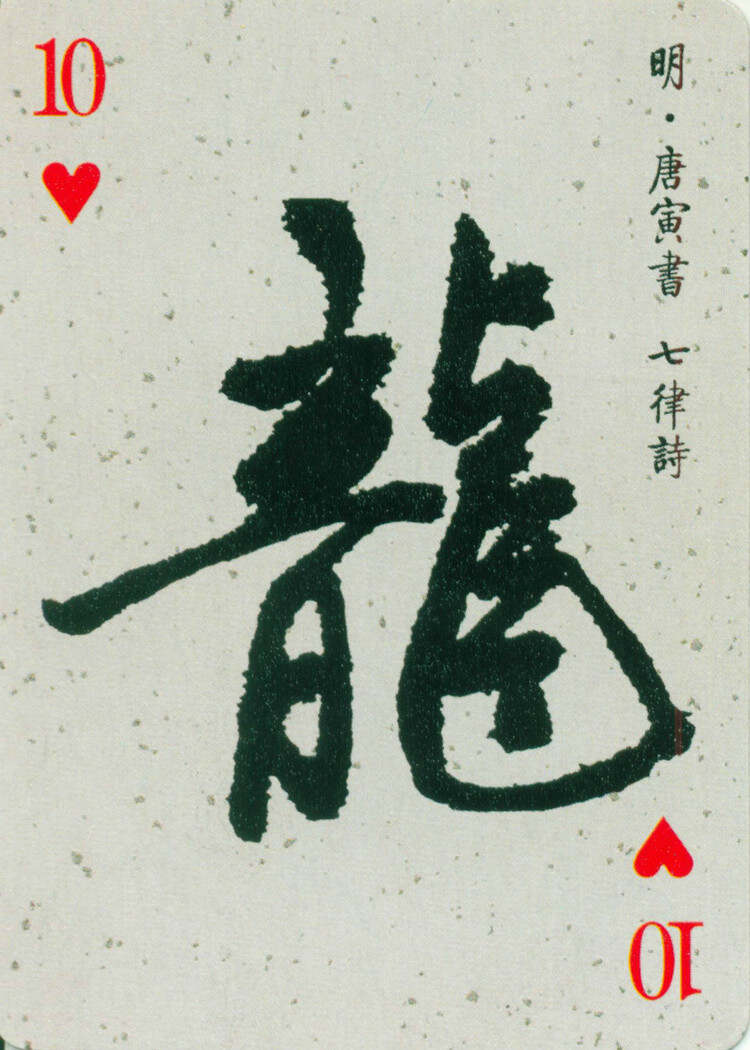 10
龍
明·唐寅書 七律詩
10